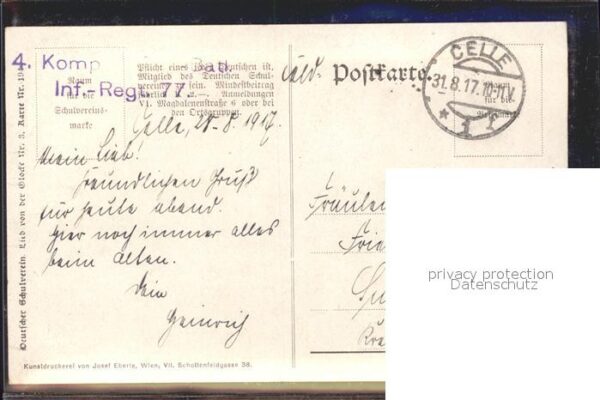 4. Komp
Inf.-Regt. 77.
Raum
für die
Schulvereins-
marke
Pflicht eines jeden Deutschen ist,
Mitglied des Deutschen Schul-
vereins zu sein. Mindestbeitrag
jährlich Anmeldungen
VI. Magdalenenstraße 6 oder bei
den Ortsgruppen.
Postkarte.
CELLE
31.8.17.10-11V.
* 1 f
für die
Celle, 28-8.1917
Mein Lieb!
Freundlichen Gruß
für heute abend.
Hier noch immer alles
beim Alten.
Dein
Heinrich
Fräulein
Deutscher Schulverein. Lied von der Glocke Nr. 3. Karte Nr. 19
Kunstdruckerei von Josef Eberle, Wien, VII. Schottenfeldgasse 38.
privacy protection
Datenschutz